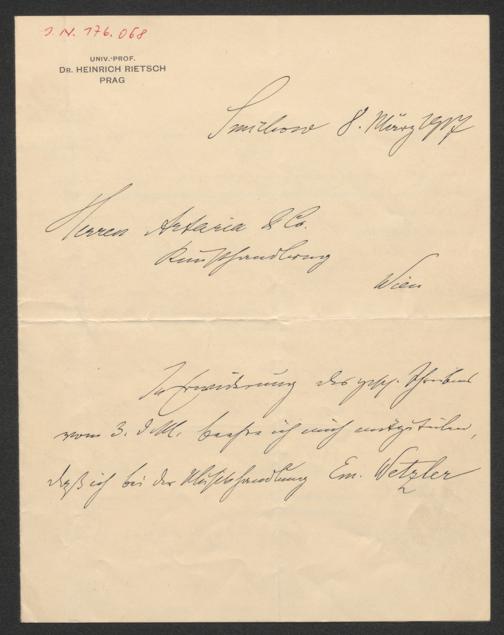 I.N. 176.068
UNIV.-PROF.
DR. HEINRICH RIETSCH
PRAG
Smichow 8. März 1917
Herren Artaria & Co.
Kunsthandlung
Wien
In Erwiderung des gesch. Schreibens
vom 3. d. M. beehre ich mich mitzuteilen,
daß ich bei der Musikhandlung Em. Wetzler